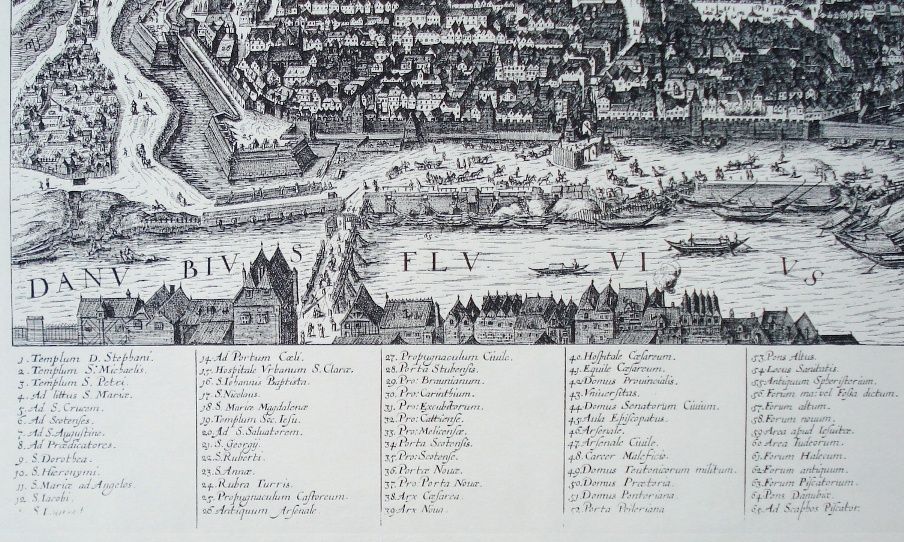 DANUBIUS FLUVIUS
1. Templum D. Stephani.
2. Templum S. Michaelis.
3. Templum S. Petri.
4. Ad littus S. Mariæ.
5. Ad S. Crucem.
6. Ad Scotenses.
7. Ad S. Augustine.
8. Ad Prædicatores.
9. S. Dorothea.
10. S. Hieronymi.
11. S. Mariæ ad Angelos.
12. S. Iacobi.
14. Ad Portum Cæli.
15. Hospitale Vrbanum S. Claræ.
16. S. Iohannis Baptista.
17. S. Nicolaus.
18. S. Mariæ Magdalenæ
19. Templum Soc. Iesu.
20. Ad S. Salvatorem.
21. S. Georgij.
22. S. Ruberti.
23. S. Annæ.
24. Rubra Turris.
25. Propugnaculum Castoreum.
26. Antiquum Arsenale.
27. Propugnaculum Ciuile.
28. Porta Stubensis.
29. Pro: Braunianum.
30. Pro: Carinthium.
31. Pro: Excubitorum.
32. Pro: Cattiense.
33. Pro: Melicensæ.
34. Porta Scotensis.
35. Pro: Scotense.
36. Portæ Nouæ.
37. Pro: Porta Nouæ.
38. Arx Cæsarea.
39. Arx Noua.
40. Hospitale Cæsareum.
41. Equile Cæsareum.
42. Domus Prouincialis.
43. Vniuersitas.
44. Domus Senatorum Ciuium.
45. Aula Episcopatus.
46. Arsenale.
47. Arsenale Ciuile.
48. Carcer Maleficio.
49. Domus Teutonicorum militum.
50. Domus Prætoria.
51. Domus Pontoriana.
52. Porta Peileriana
53. Pons Altus.
54. Locus Sanitatis.
55. Antiquum Spheristerium.
56. Forum ma: vel Fossa dictum.
57. Forum altum.
58. Forum nouum.
59. Area apud Iesuitæ.
60. Area Iudeorum.
61. Forum Halecum.
62. Forum antiquum.
63. Forum Piscatorium.
64. Pons Danubiæ.
65. Ad Scaphos Piscator.